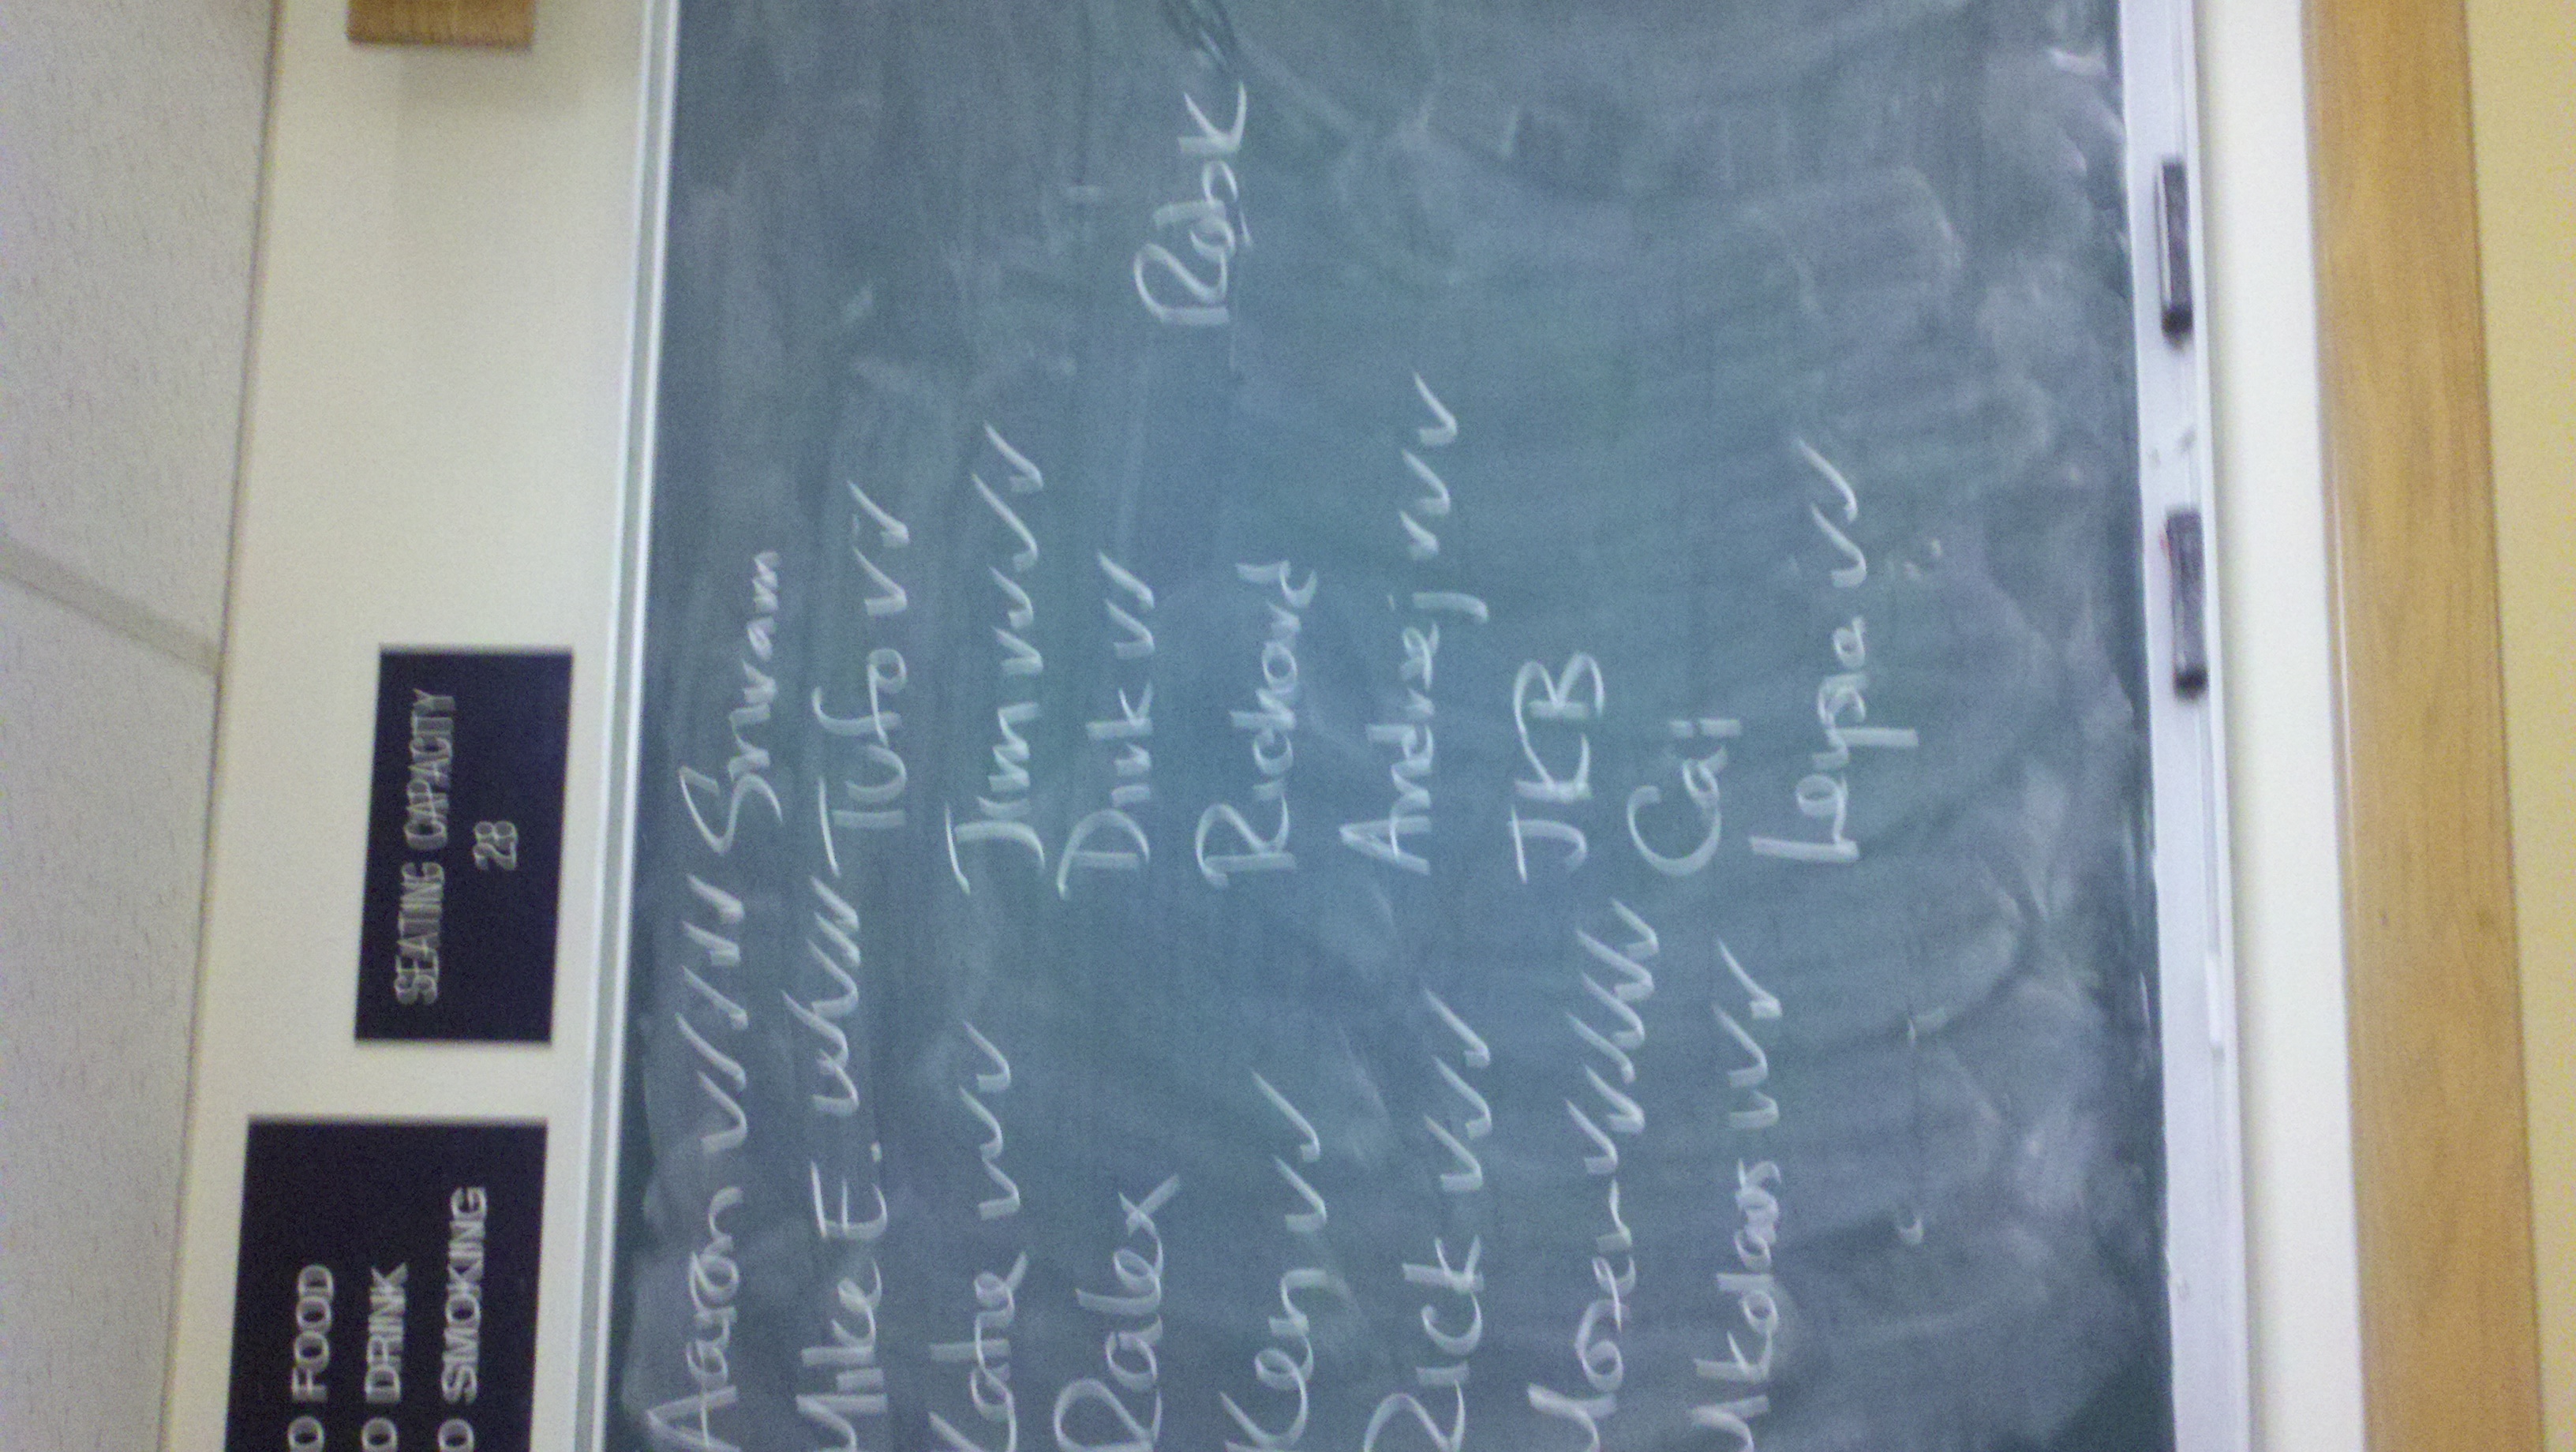 O FOOD
O DRINK
O SMOKING
SEATING CAPACITY
28
Aaron ✓✓✓✓✓
Mike E. ✓✓✓✓✓✓
Katie ✓✓✓
Ralex
Ken ✓✓
Rick ✓✓✓
Moser ✓✓✓✓✓✓
Nikolaus ✓✓✓
Sriram
Tufo ✓✓
Jim ✓✓✓✓
Dirk ✓✓
Richard
Andrzej ✓✓✓
JKB
Cai
Leysia ✓✓
RobK